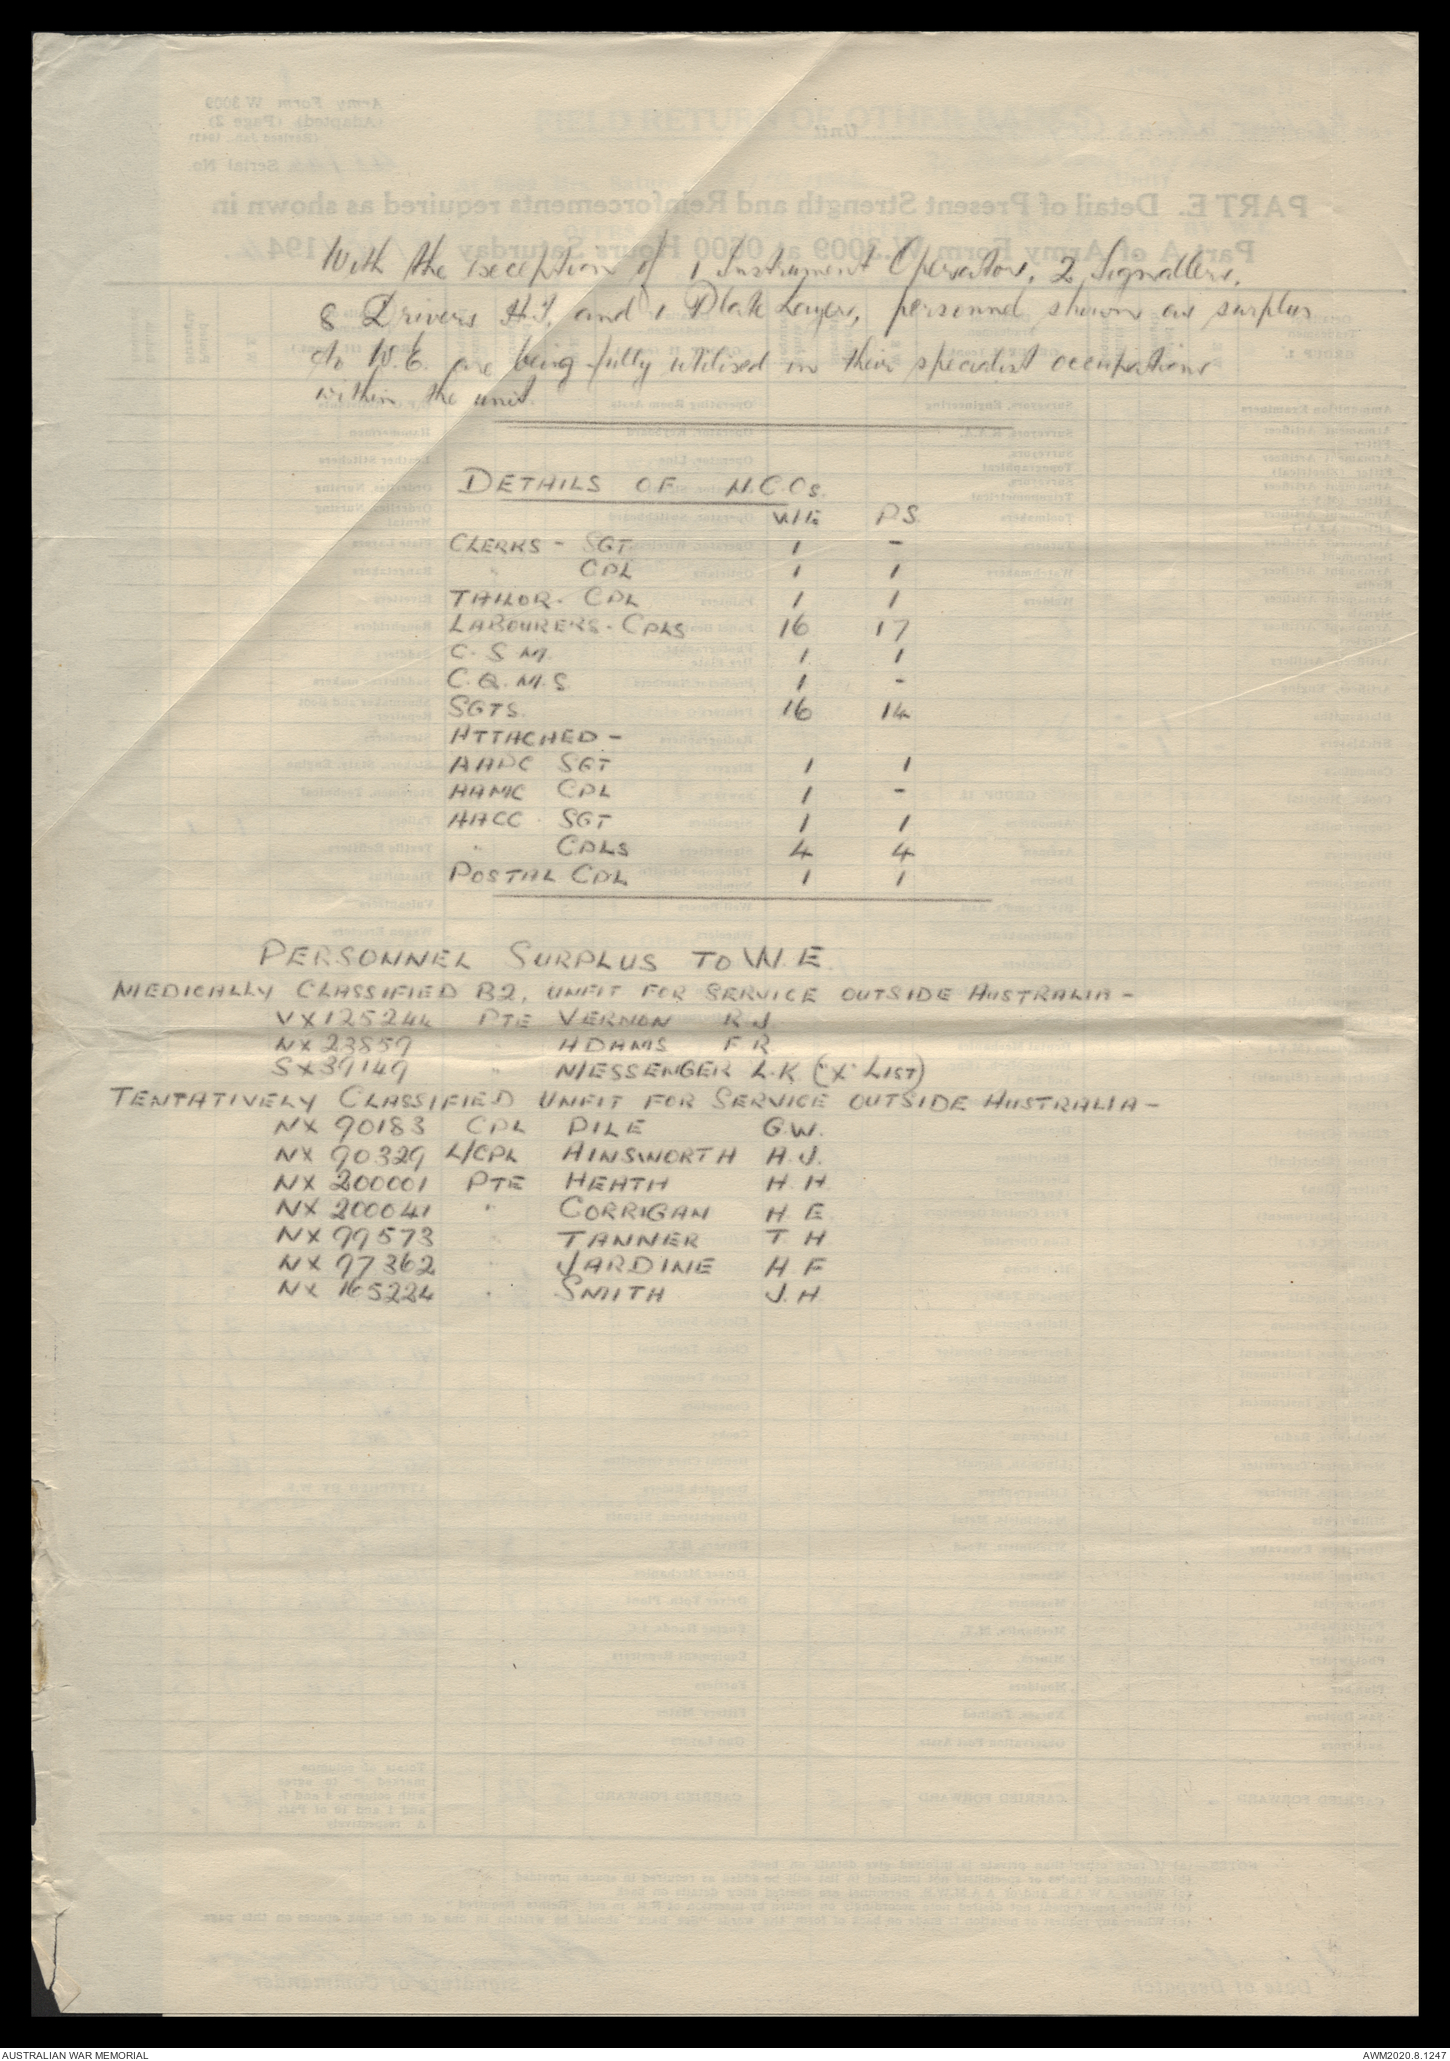 With the exception of 1 Instrument Operator, 2 Signallers,
8 Drivers H.T. and 1 Plate Layer, personnel shown as surplus
to W.E. are being fully utilised in their specialist occupations
within the unit.
DETAILS OF N.C.Os.
W/E P.S.
CLERKS - SGT 1 -
" CPL 1 1
TAILOR - CPL 1 1
LABOURERS - CPLS 16 17
C.S.M. 1 1
C.Q.M.S. 1 -
SGTS. 16 14
ATTACHED -
AAPC SGT 1 1
AAMC CPL 1 -
AACC - SGT 1 1
" CPLS 4 4
POSTAL CPL 1 1
PERSONNEL SURPLUS TO W.E.
MEDICALLY CLASSIFIED B2, UNFIT FOR SERVICE OUTSIDE AUSTRALIA -
VX125244 PTE VERNON R.J.
NX23859 " ADAMS F R
SX39149 " MESSENGER L.K ("X" LIST)
TENTATIVELY CLASSIFIED UNFIT FOR SERVICE OUTSIDE AUSTRALIA -
NX 90183 CPL PILE G.W.
NX 90329 L/CPL AINSWORTH A.J.
NX 200001 PTE HEATH H.H
NX 200041 " CORRIGAN H E
NX 99573 " TANNER T H
NX 97362 " JARDINE A F
NX 165224 " SMITH J. H
AUSTRALIAN WAR MEMORIAL
AWM2020.8.1247